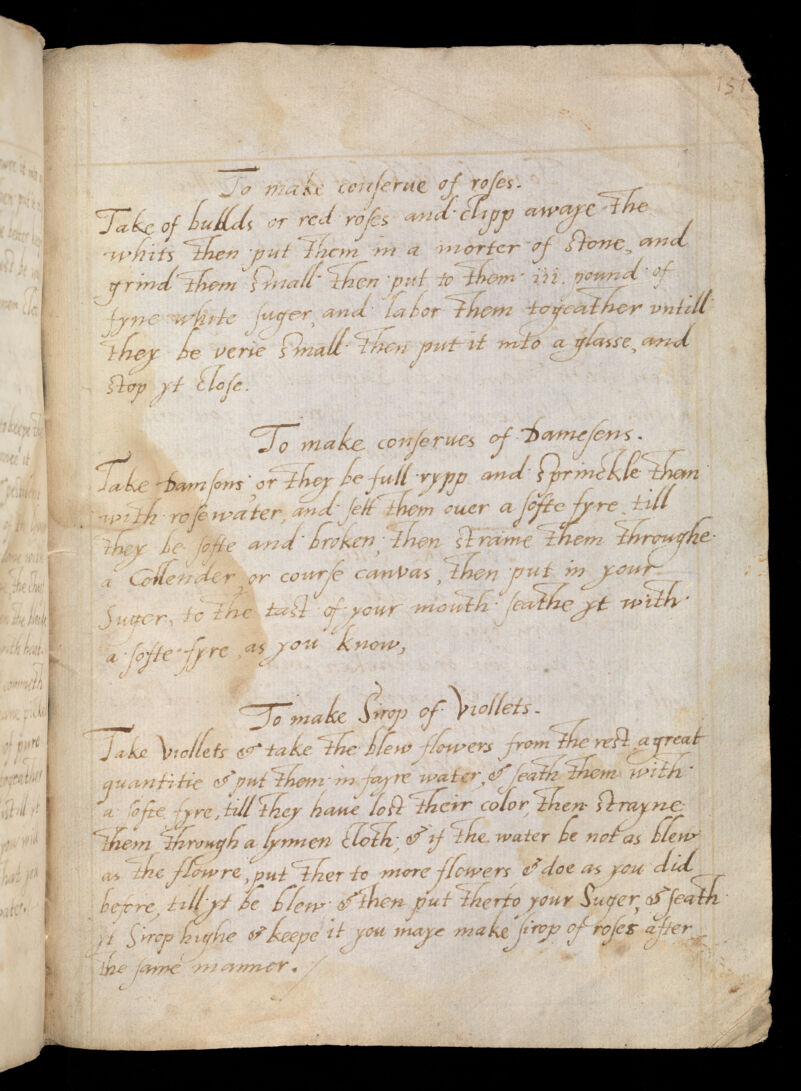 151
To make conserue of roses.
Take of budds or red roses and clipp awaye the
whits then put them in a morter of stone, and
grind them small then put to them iii. pound of
fyne white suger, and labor them togeather vntill
they be verie small then put it into a glasse, and
stop yt close.
To make conserues of Damesens.
Take Damsons or they be full rypp and sprinckle them
with rosewater, and sett them ouer a softe fyre till
they be softe and broken, then straine them throughe
a Collender or course canvas, then put in your
Suger, to the tast of your mouth seathe yt with
a softe fyre as you know,
To make Sirop of Viollets.
Take Viollets & take the blew flowers from the rest a great
quantitie & put them in fayre water, & seath them with
a softe fyre, till they haue lost their color, then strayne
them through a lynnen cloth, & if the water be not as blew
as the flowre, put ther to more flowers & doe as you did
before, till yt be blew & then put therto your Suger, & seath
yt Sirop highe & keepe it you maye make sirop of roses after
the same manner.